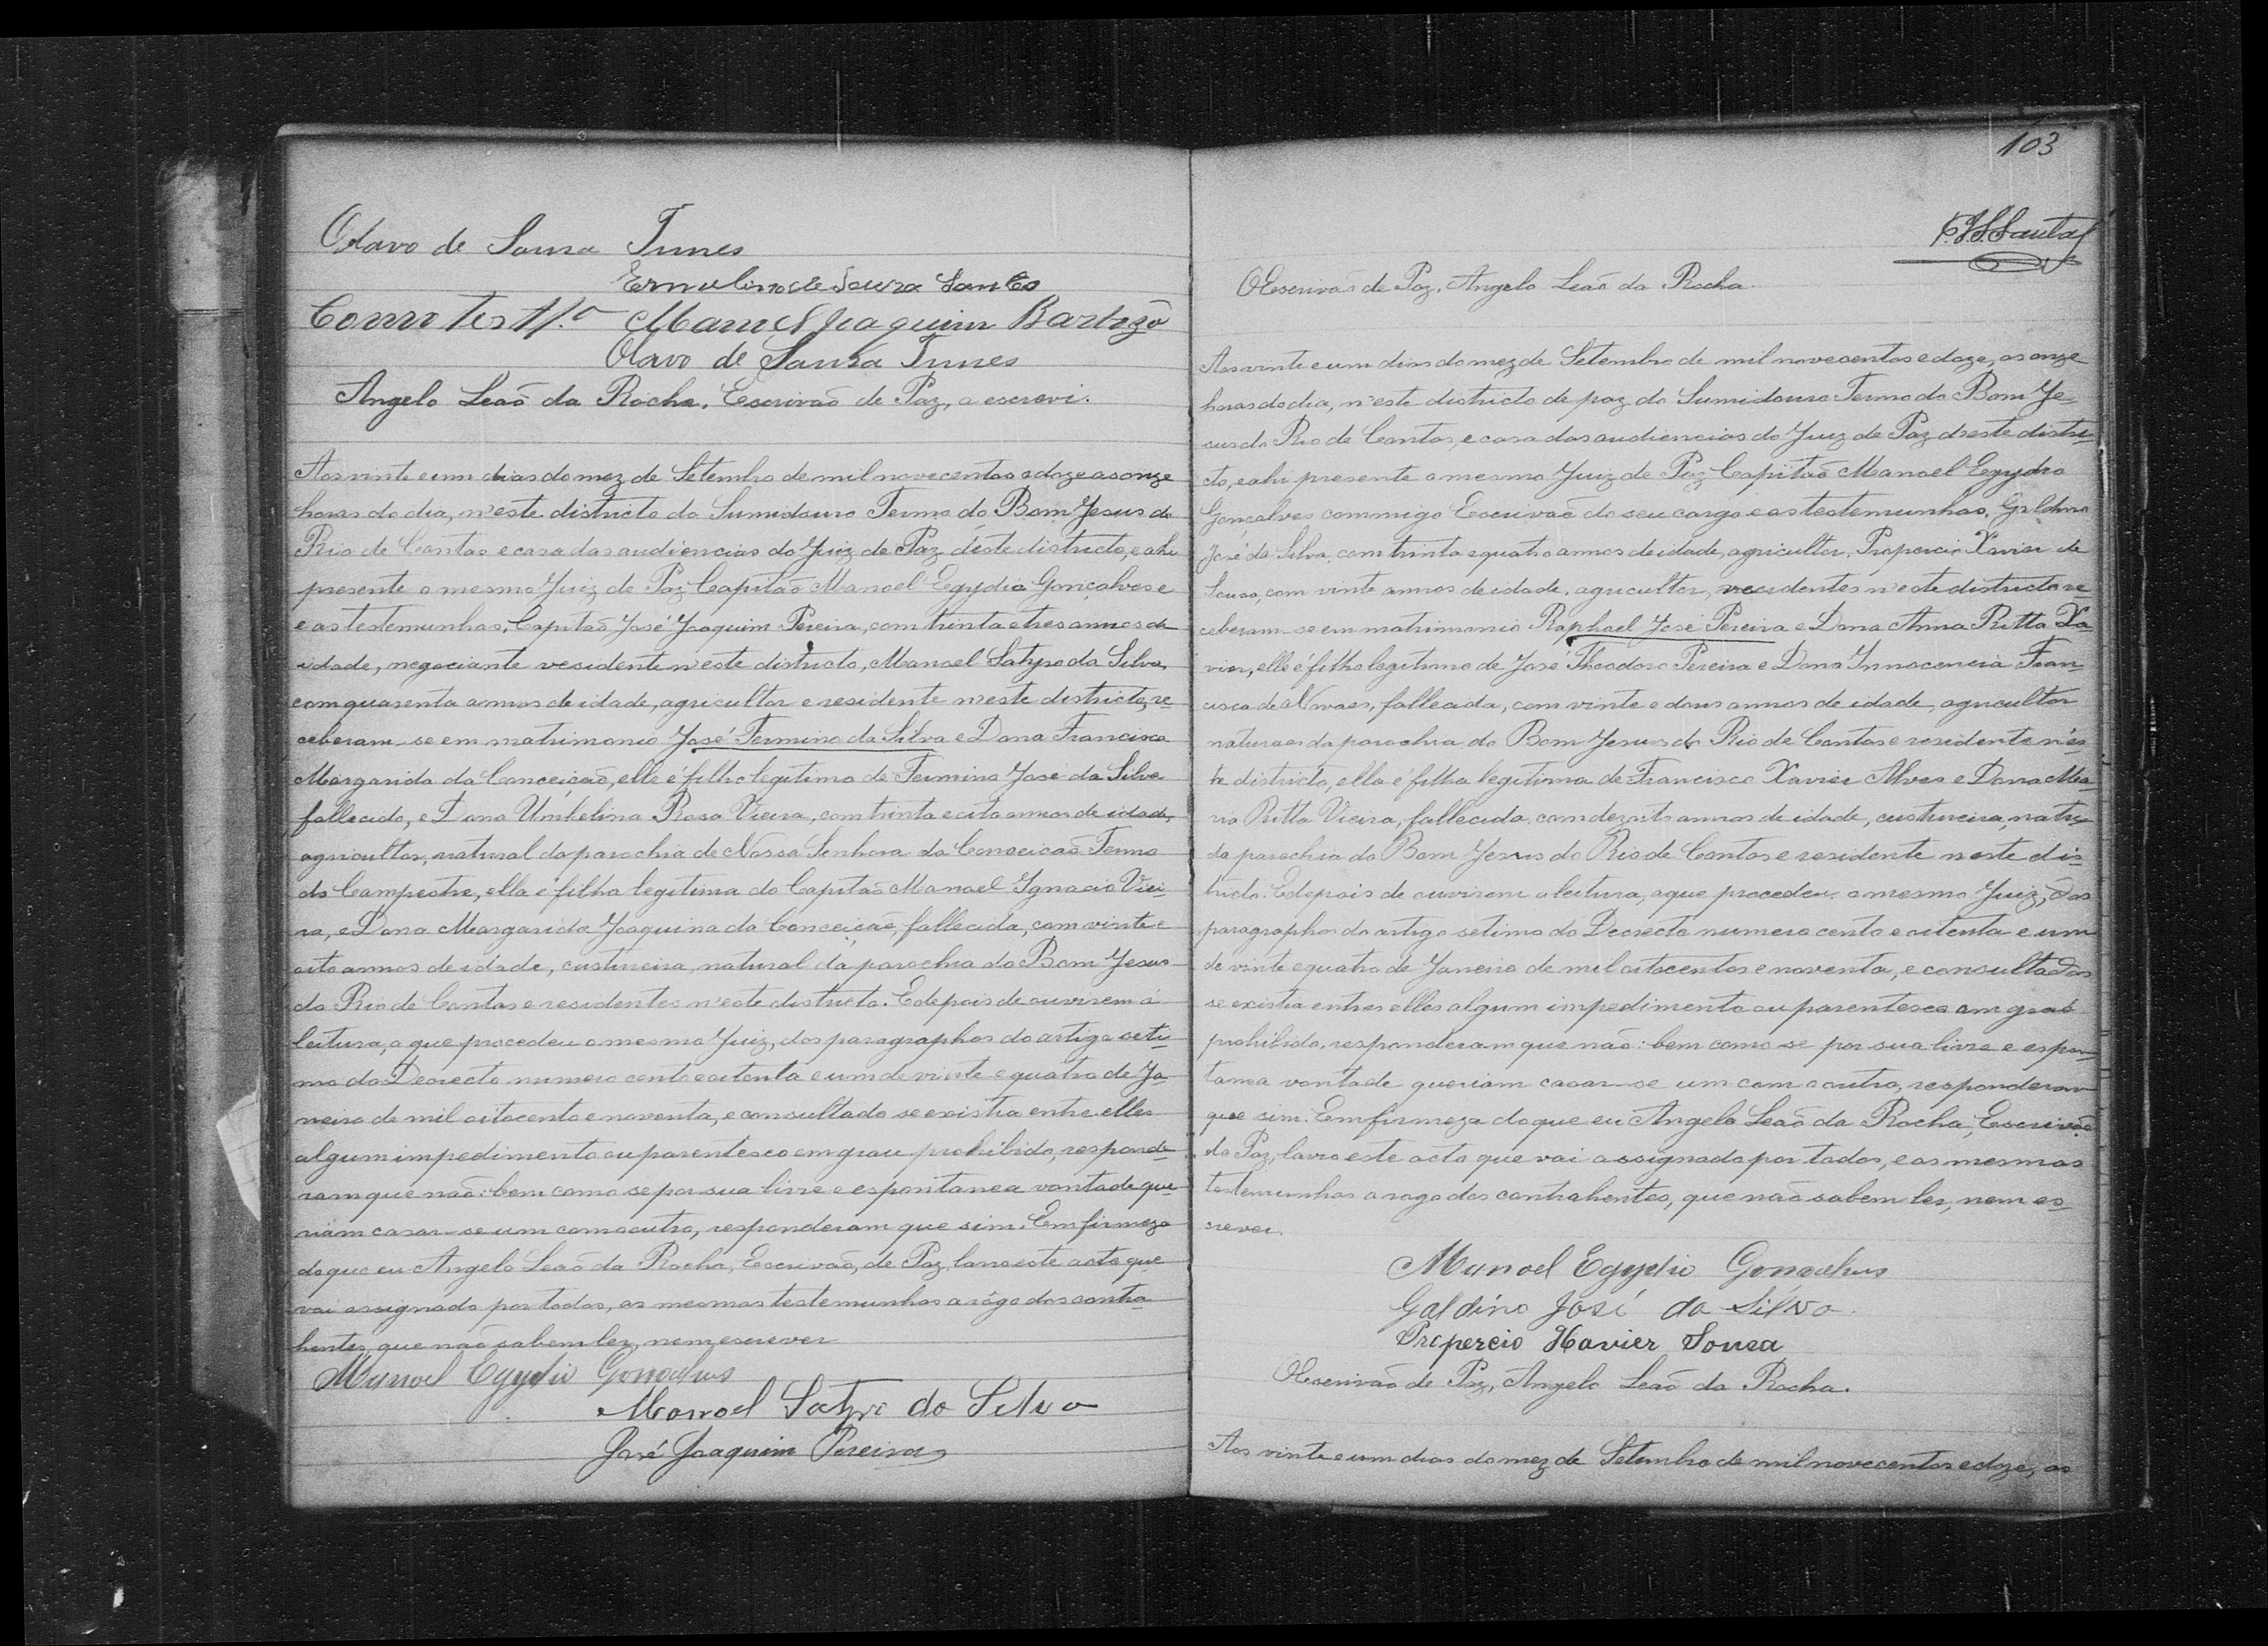 Olavo de Souza Tunes
Ermelino de Souza Santos
Como test.a Manuel Joaquim Bartozo
Olavo de Souza Tunes
Angelo Leão da Rocha, Escrivão de Paz, a escrevi.
Aos vinte e um dias do mez de Setembro de mil novecentos e doze as onze
horas do dia, n'este districto do Sumidouro Termo do Bom Jesus do
Rio de Contas e casa das audiencias do Juiz de Paz d'este districto, e ahi
presente o mesmo Juiz de Paz Capitão Manoel Egydio Gonçalves e
e as testemunhas, Capitão José Joaquim Pereira, com trinta e tres annos de
idade, negociante residente n'este districto, Manoel Satyro da Silva,
com quarenta annos de idade, agricultor e residente n'este districto, re-
ceberam-se em matrimonio José Fermino da Silva e Dona Francisca
Margarida da Conceição, elle é filho legitimo de Fermino José da Silva
fallecido, e Dona Umbelina Rosa Vieira, com trinta e oito annos de idade,
agricultor, natural da parochia de Nossa Senhora da Conceicão Termo
do Campestre, ella é filha legitima do Capitão Manoel Ignacio Viei-
ra, e Dona Margarida Joaquina da Conceição, fallecida, com vinte e
oito annos de idade, custureira, natural da parochia do Bom Jesus
do Rio de Contas e residentes n'este districto. E depois de ouvirem á
leitura, a que procedeu o mesmo Juiz, dos paragraphos do artigo seti-
mo do Decrecto numero cento e oitenta e um de vinte e quatro de Ja-
neiro de mil oitocento e noventa, e consultado se existia entre elles
algum impedimento ou parentesco em grau prohibido, responde-
ram que não: bem como se por sua livre e espontanea vontade que-
riam casar-se um com o outro, responderam que sim. Em firmeza
do que eu Angelo Leão da Rocha, Escrivão, de Paz, lavro este acto que
vai assignado por todos, as mesmas testemunhas a rógo dos contra-
hentes, que não sabem ler, nem escrever
Manoel Egydio Gonçalves
Manoel Satyro da Silva
José Joaquim Pereira
103
O Escrivão de Paz, Angelo Leão da Rocha.
Aos vinte e um dias do mez de Setembro de mil novecentos e doze, as onze
horas do dia, n'este districto de paz do Sumidouro Termo do Bom Je-
sus do Rio de Contas, e casa das audiencias do Juiz de Paz d'este distri-
cto, e ahi presente o mesmo Juiz de Paz Capitão Manoel Egydio
Gonçalves commigo Escrivão do seu cargo e as testemunhas, Galdino
José da Silva, com trinta e quatro annos de idade, agricultor, Propercio Xavier de
Sousa, com vinte annos de idade, agricultor, residentes n'este districto re-
ceberam-se em matrimonio Raphael José Pereira e Dona Anna Ritta Xa-
vier, elle é filho legitimo de José Theodoro Pereira e Dona Innocencia Fran-
cisca de Novaes, fallecida, com vinte e dous annos de idade, agricultor
naturaes da parochia do Bom Jesus do Rio de Contas e residente n'es-
te districto, ella é filha legitima de Francisco Xavier Alves e Dona Ma-
ria Ritta Vieira, fallecida, com dezoito annos de idade, custureira, natu-
da parochia do Bom Jesus do Rio de Contas e residente neste dis-
tricto. E depois de ouvirem a leitura, a que procedeu o mesmo Juiz, dos
paragraphos do artigo setimo do Decrecto numero cento e oitenta e um
de vinte e quatro de Janeiro de mil oitocentos e noventa, e consultados
se existia entres elles algum impedimento ou parentesco em grao
prohibido, responderam que não: bem como se por sua livre e espon-
tanea vontade queriam casar-se um com o outro, responderam
que sim. Em firmeza do que eu Angelo Leão da Rocha, Escrivão
de Paz, lavro este acto que vai assignado por todos, e as mesmas
testemunhas a rogo dos contrahentes, que não sabem ler, nem es-
crever.
Manoel Egydio Gonçalves
Galdino José da Silva.
Propercio Xavier Sousa
O Escrivão de Paz, Angelo Leão da Rocha.
Aos vinte e um dias do mez de Setembro de mil novecentos e doze, as